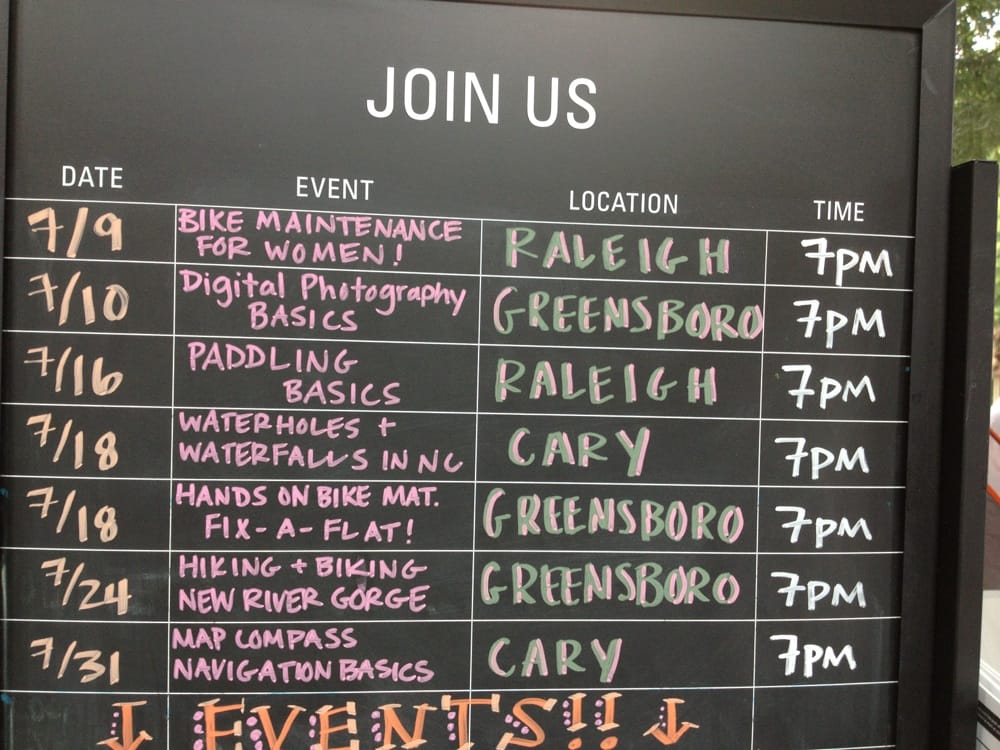 JOIN US
DATE EVENT LOCATION TIME
7/9 BIKE MAINTENANCE FOR WOMEN! RALEIGH 7PM
7/10 Digital Photography BASICS GREENSBORO 7PM
7/16 PADDLING BASICS RALEIGH 7PM
7/18 WATERHOLES + WATERFALLS IN NC CARY 7PM
7/18 HANDS ON BIKE MAT. FIX-A-FLAT! GREENSBORO 7PM
7/24 HIKING + BIKING NEW RIVER GORGE GREENSBORO 7PM
7/31 MAP COMPASS NAVIGATION BASICS CARY 7PM
↓ EVENTS!! ↓